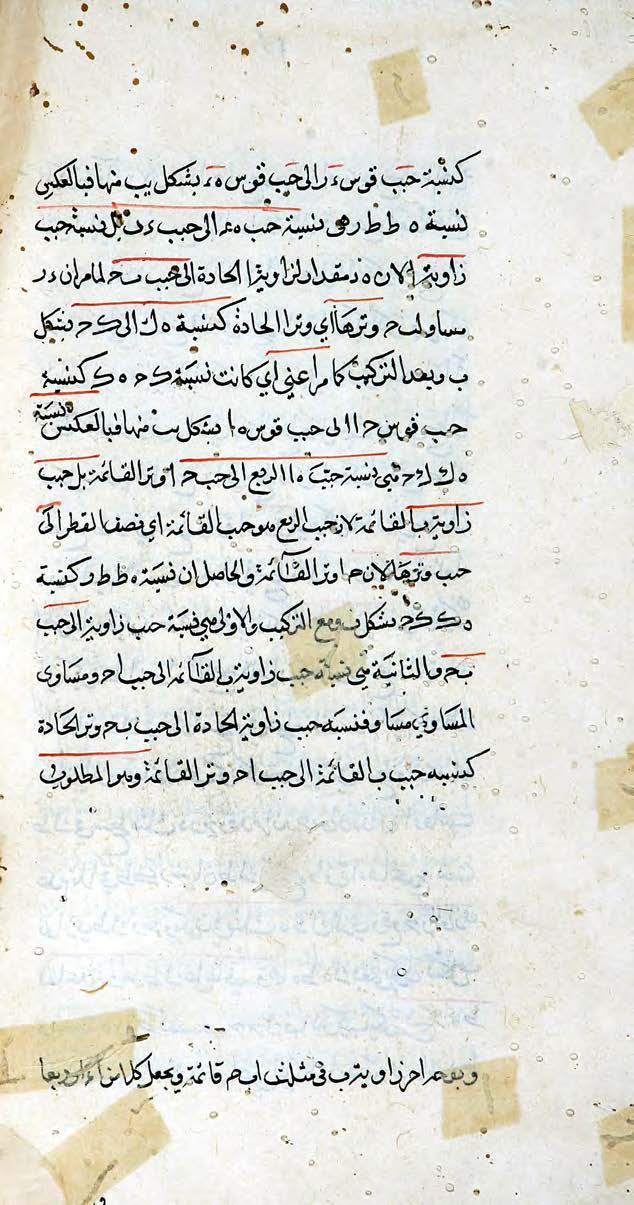 كنسبة جيب قوس ء ر الى جيب قوس ه ء بشكل يب منها فبالعكس
نسبة ه ط ط ر هى نسبة جيب ه ء الى جيب ء ر بل نسبة جيب
زاوية ا لان ه ء مقدار لزاوية ا الحادة الى جيب ب ح لما مر ان ء ر
مساو لب ح وترها اي وتر ا الحادة كنسبة ه ك الى ك ح بشكل
ب وبعد التركيب كما مر اعني اي كانت نسبة ك ح ه ك كنسبة
جيب قوس ح ا الى جيب قوس ه ا بشكل يب منها فبالعكس نسبة
ه ك ك ح هي نسبة جيب ه ا الربع الى جيب ح ا وتر القائمة بل جيب
زاوية ب القائمة لان جيب الربع هو جيب القائمة اي نصف القطر الى
جيب وترها لان ح ا وتر القائمة والحاصل ان نسبة ه ط ط ر كنسبة
ه ك ك ح بشكل ب ومع التركيب والاولى هي نسبة جيب زاوية ا الى جيب
ب ح والثانية هي نسبة جيب زاوية ب القائمة الى جيب ا ح ومساوى
المساوي مساو فنسبة جيب زاوية ا الحادة الى جيب ب ح وتر الحادة
كنسبة جيب ب القائمة الى جيب ا ح وتر القائمة وهو المطلوب
وبوجه اخر زاوية ب في مثلث ا ب ح قائمة ويجعل كلا من